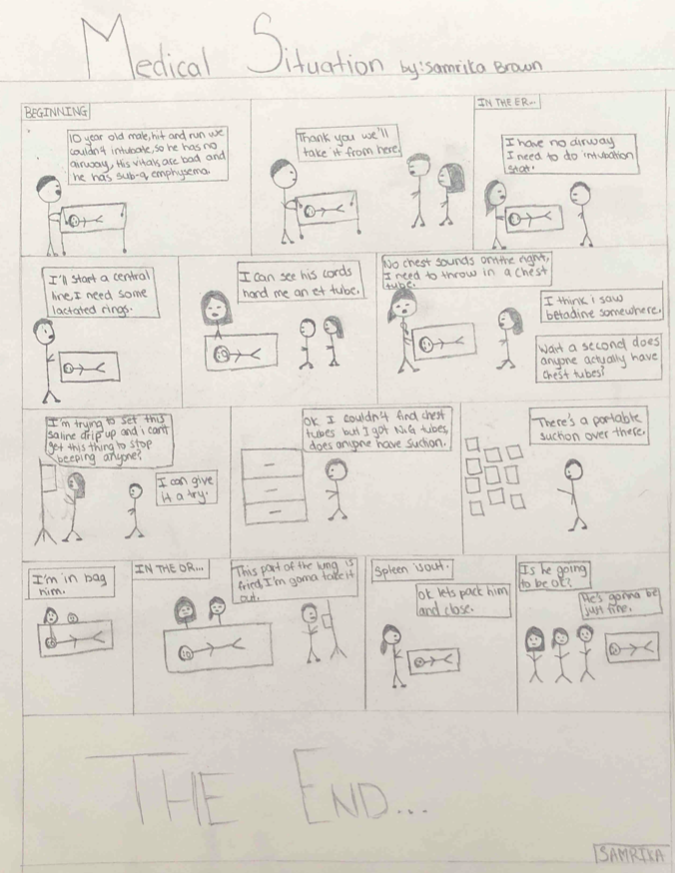 Medical Situation by: Samrika Brown
BEGINNING
10 year old male, hit and run we
couldn't intubate, so he has no
airway, His vitals are bad and
he has sub-q emphysema.
Thank you we'll
take it from here.
IN THE ER...
I have no airway
I need to do intubation
stat.
I'll start a central
line, I need some
lactated rings.
I can see his cords
hand me an et tube.
No chest sounds on the right,
I need to throw in a chest
tube.
I think i saw
betadine somewhere.
Wait a second does
anyone actually have
chest tubes?
I'm trying to set this
saline drip up and i can't
get this thing to stop
beeping anyone?
I can give
it a try.
Ok I couldn't find chest
tubes but I got N.G tubes
does anyone have suction.
There's a portable
suction over there.
I'm in bag
him.
IN THE OR...
This part of the lung is
fried I'm gonna take it
out.
Spleen is out.
Ok lets pack him
and close.
Is he going
to be ok?
He's gonna be
just fine.
THE END...
SAMRIKA